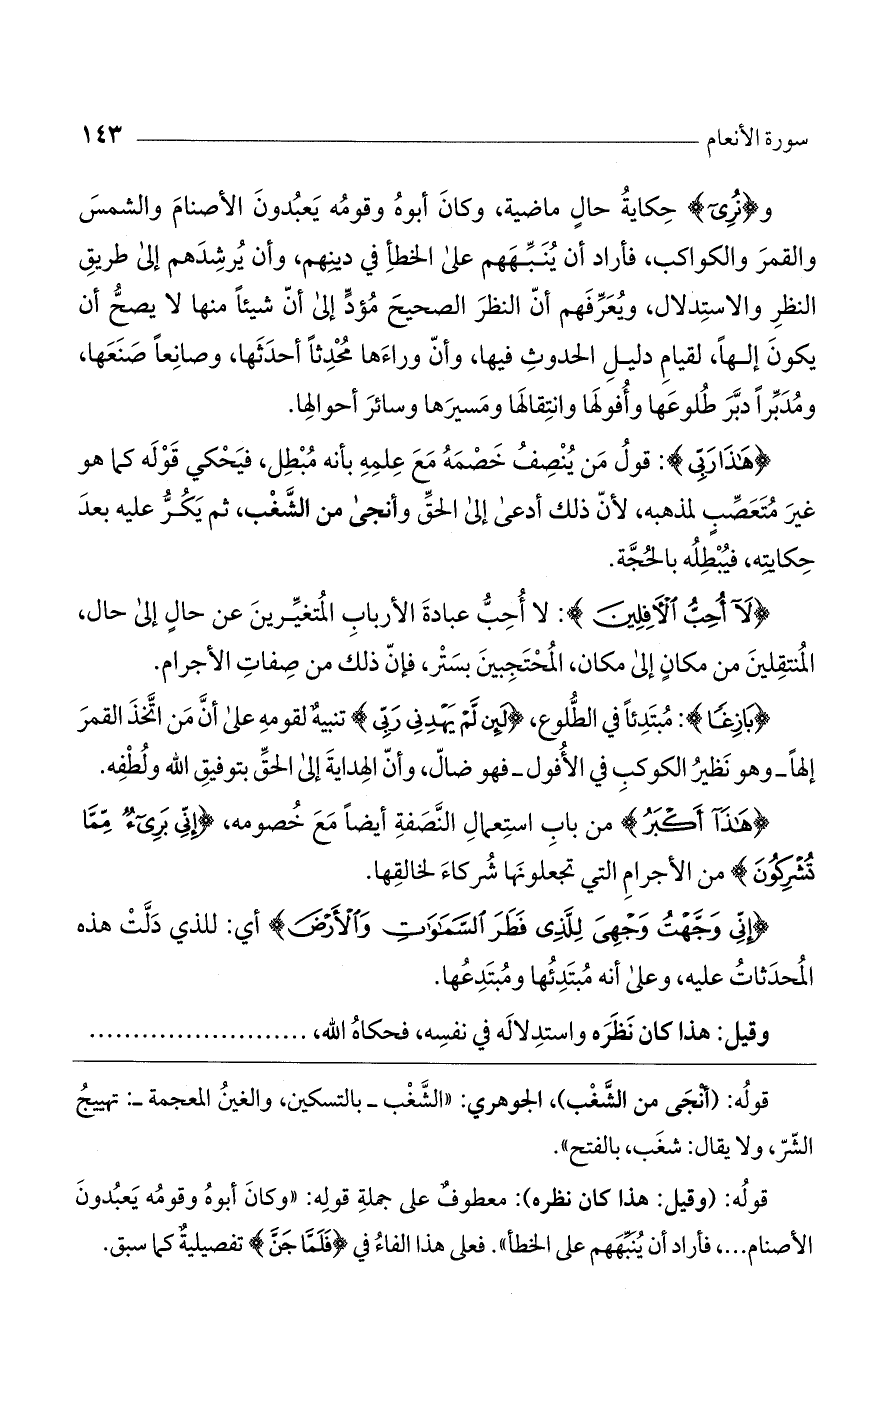 سورة الأنعام ١٤٣
و﴿نُرِىٓ﴾ حِكايةُ حالٍ ماضية، وكانَ أبوهُ وقومُه يَعبُدونَ الأصنامَ والشمسَ
والقمرَ والكواكب، فأراد أن يُنَبِّـهَهم علىٰ الخطأِ في دينِهم، وأن يُرشِدَهم إلىٰ طريقِ
النظرِ والاستِدلال، ويُعَرِّفَهم أنّ النظرَ الصحيحَ مُؤدٍّ إلىٰ أنّ شيئاً منها لا يصحُّ أن
يكونَ إلـهاً، لقيامِ دليـلِ الحدوثِ فيها، وأنّ وراءَها مُحْدِثاً أحدَثَها، وصانِعاً صَنَعَها،
ومُدَبِّراً دبَّرَ طُلوعَها وأُفولَها وانتِقالَها ومَسيرَها وسائرَ أحوالِها.
﴿هَٰذَا رَبِّى﴾: قولُ مَن يُنْصِفُ خَصْمَهُ مَعَ عِلمِهِ بأنه مُبْطِل، فيَحْكي قَوْلَه كما هو
غيرَ مُتَعَصِّبٍ لمذهبه، لأنّ ذلك أدعىٰ إلىٰ الحقِّ وأنجىٰ من الشَّغْب، ثم يَكُرُّ عليه بعدَ
حِكايتِه، فيُبْطِلُه بالحُجَّة.
﴿لَآ أُحِبُّ ٱلْأَفِلِينَ﴾: لا أُحِبُّ عبادةَ الأربابِ المُتغيِّـرينَ عن حالٍ إلىٰ حال،
المُنتقِلينَ من مكانٍ إلىٰ مكان، المُحْتَجِبينَ بسَتْر، فإنّ ذلك من صِفاتِ الأجرام.
﴿بَازِغًا﴾: مُبتَدِئاً في الطُّلوع، ﴿لَئِن لَّمْ يَهْدِنِى رَبِّى﴾ تنبيهٌ لقومِهِ علىٰ أنَّ مَن اتَّخذَ القمرَ
إلهاً ـ وهو نَظيرُ الكوكبِ في الأُفول ـ فهو ضالّ، وأنّ الهِدايةَ إلىٰ الحقِّ بتوفيقِ الله ولُطْفِه.
﴿هَٰذَآ أَكْبَرُ﴾ من بابِ استِعمالِ النَّصَفةِ أيضاً مَعَ خُصومه، ﴿إِنِّى بَرِىٓءٌ مِّمَّا
تُشْرِكُونَ﴾ من الأجرامِ التي تجعلونَها شُركاءَ لخالقِها.
﴿إِنِّى وَجَّهْتُ وَجْهِىَ لِلَّذِى فَطَرَ السَّمَٰوَٰتِ وَٱلْأَرْضَ﴾ أي: للذي دَلَّتْ هذه
المُحدَثاتُ عليه، وعلىٰ أنه مُبتَدِئُها ومُبتَدِعُها.
وقيل: هذا كان نَظَرَه واستِدلالَه في نفسِه، فحكاهُ الله، ........................
قولُه: (أَنْجَى من الشَّغْب)، الجوهري: «الشَّغْب ـ بالتسكين، والغينُ المعجمة ـ: تهييجُ
الشّرّ، ولا يقال: شغَب، بالفتح».
قولُه: (وقيل: هذا كان نظره): معطوفٌ على جملةِ قولِه: «وكانَ أبوهُ وقومُه يَعبُدونَ
الأصنام...، فأراد أن يُنَبِّهَهم على الخطأ». فعلى هذا الفاءُ في ﴿فَلَمَّا جَنَّ﴾ تفصيليةٌ كما سبق.